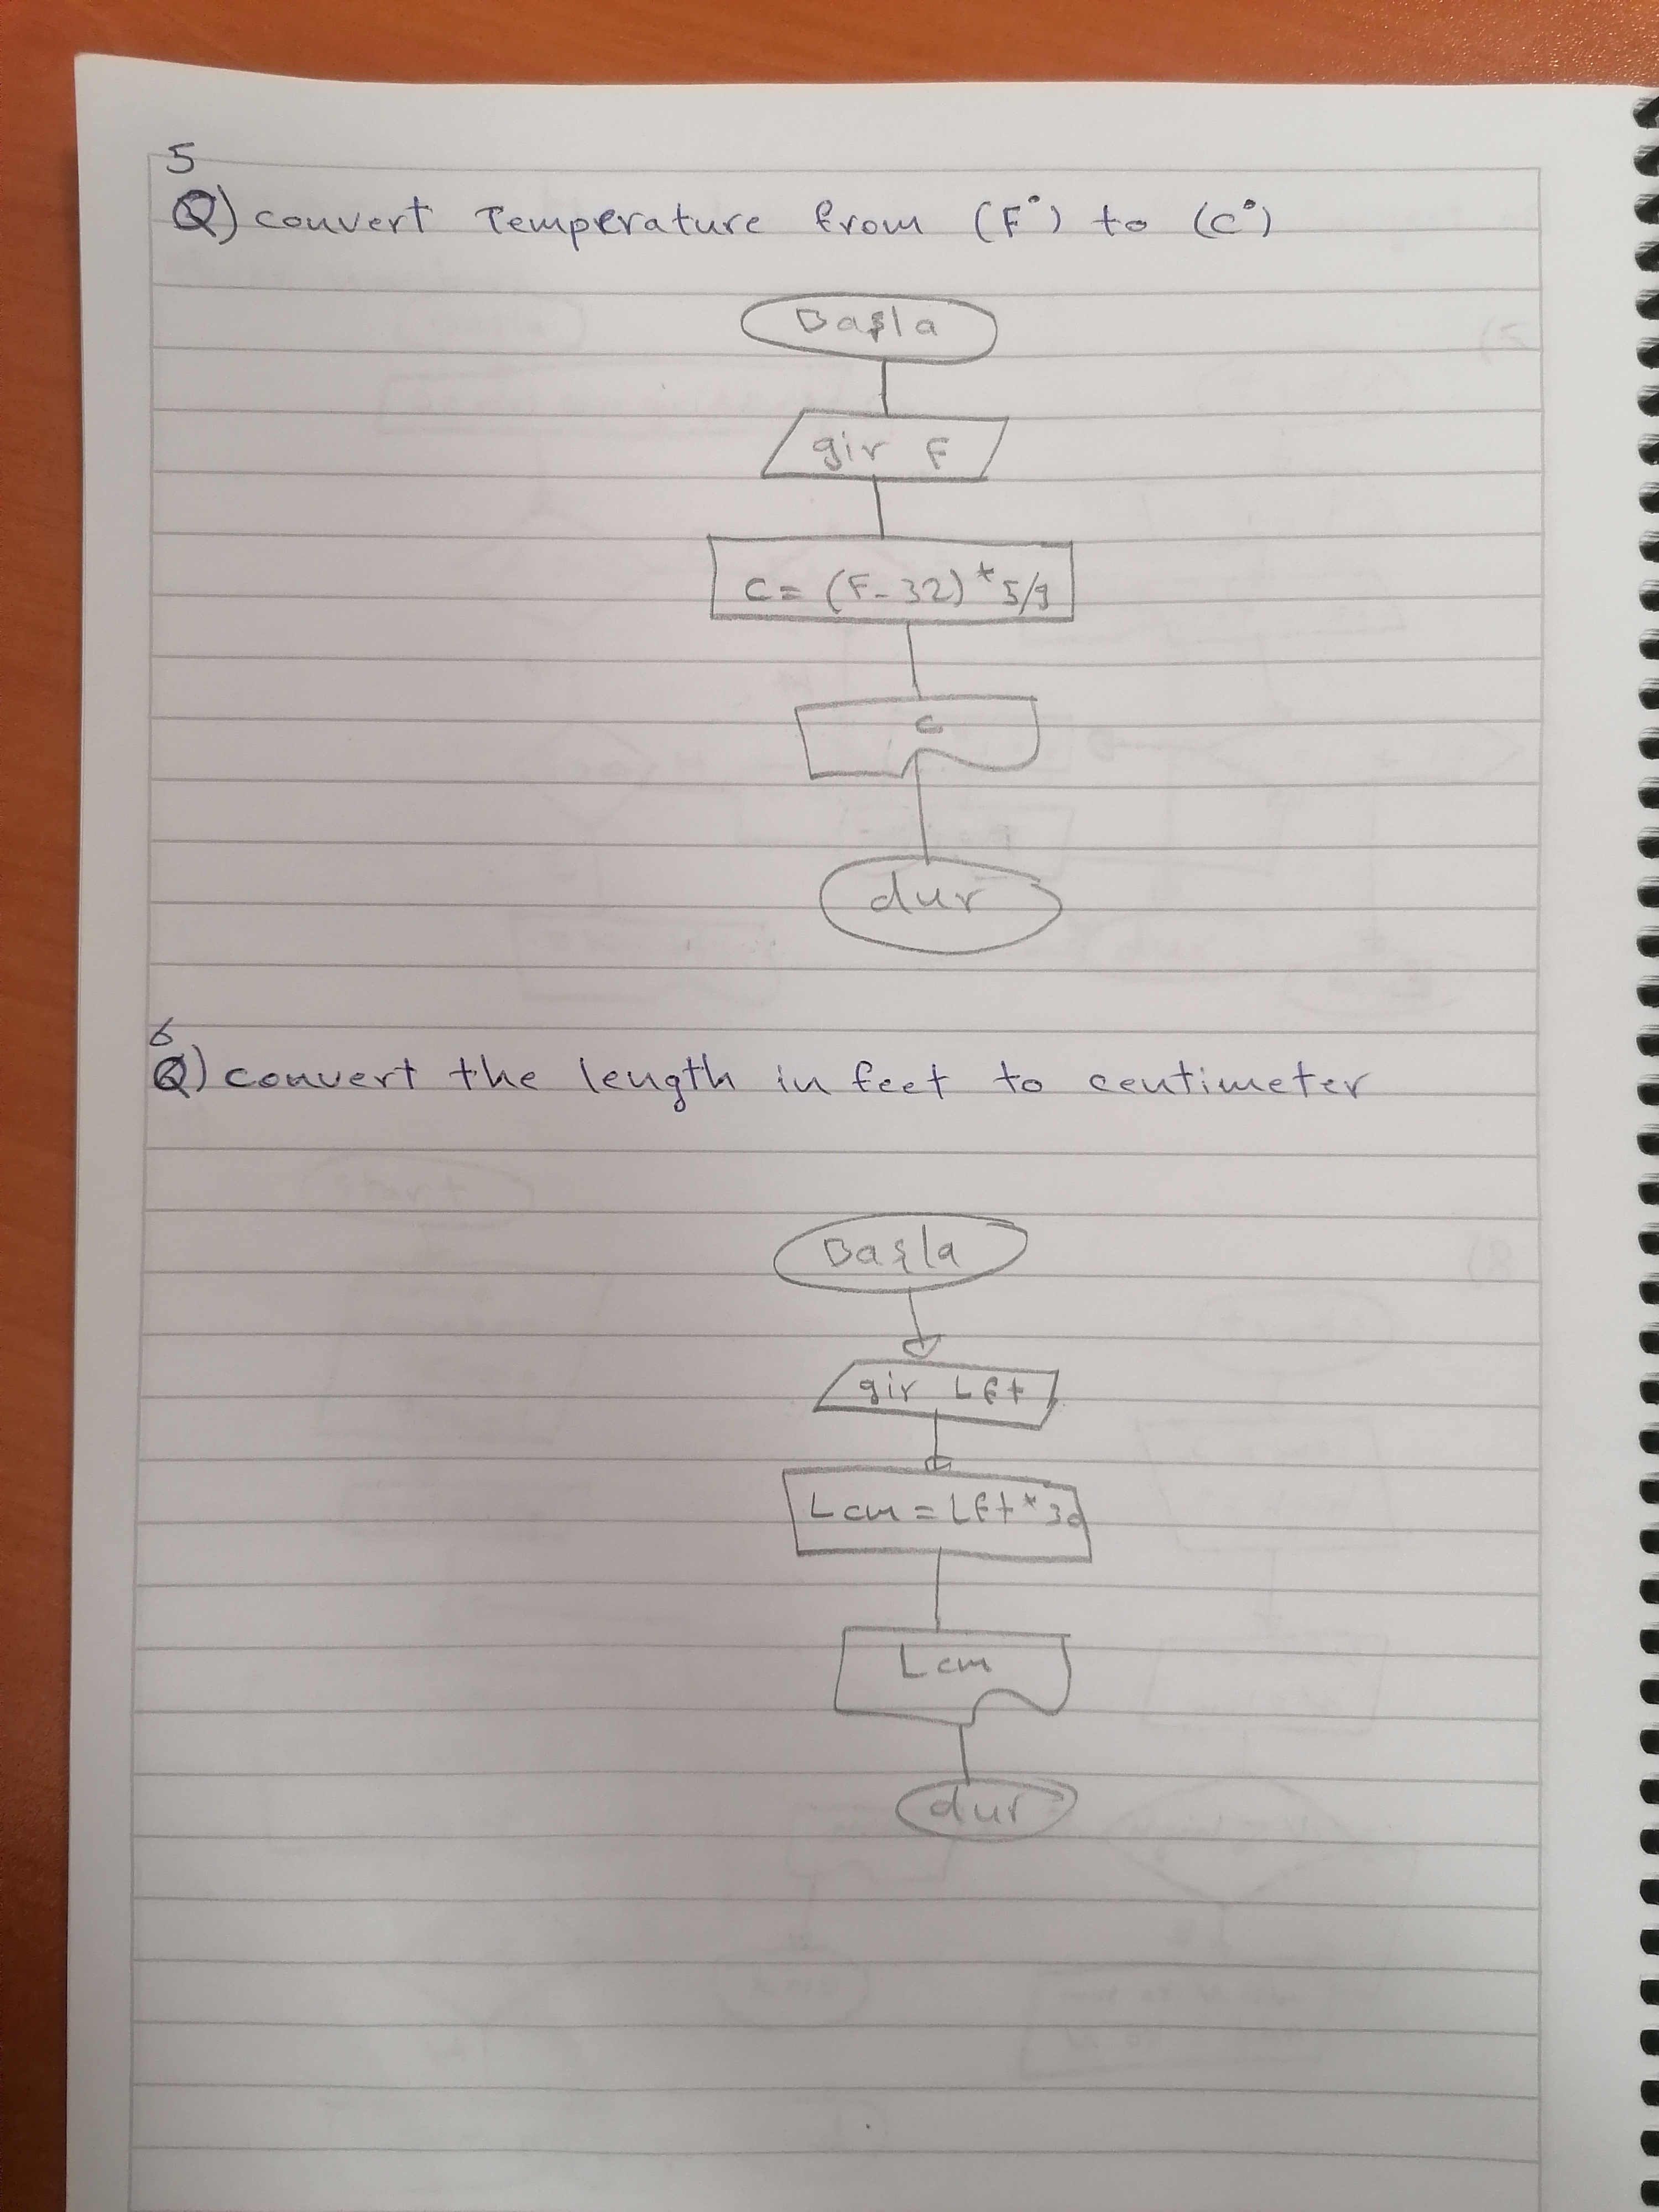 5
Q) convert Temperature from (F°) to (C°)
Başla
gir F
C = (F-32)*5/9
C
dur
6
Q) convert the length in feet to centimeter
Başla
gir Lft
Lcm = Lft*30
Lcm
dur